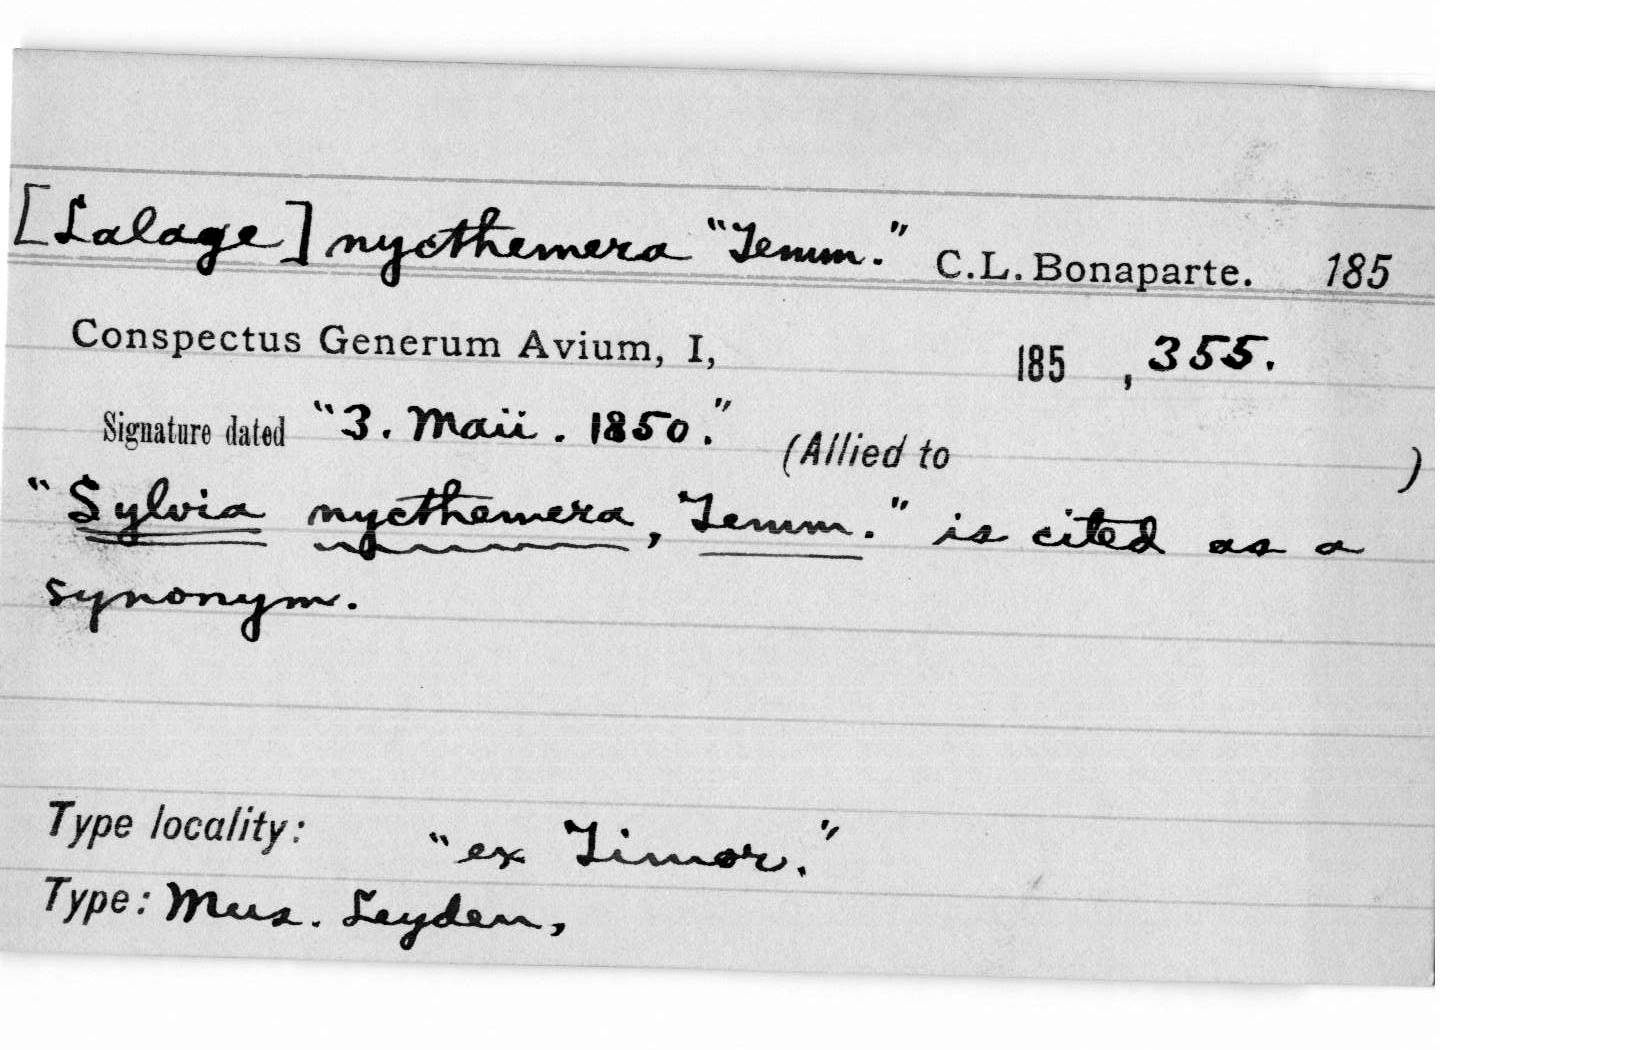 [Lalage] nycthemera "Temm." C.L. Bonaparte. 185
Conspectus Generum Avium, I, 185 , 355.
Signature dated "3. Maii. 1850." (Allied to )
"Sylvia nycthemera, Temm." is cited as a
synonym.
Type locality: "ex Timor."
Type: Mus. Leyden,